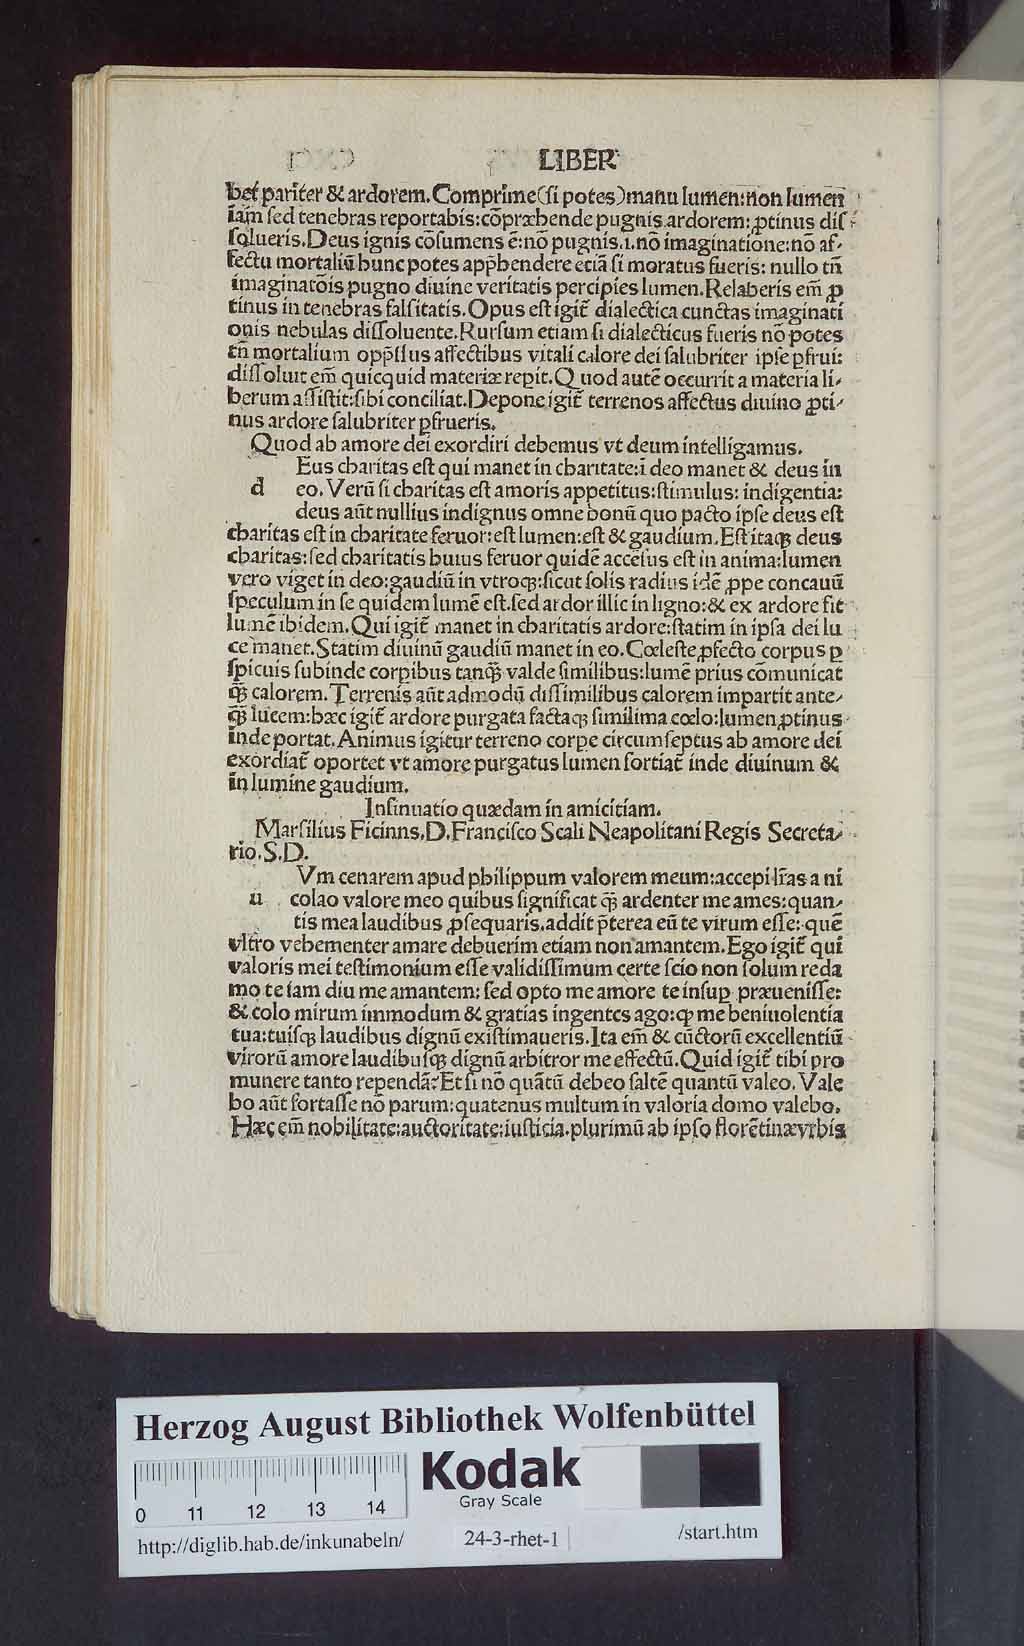 LIBER
bet pariter & ardorem. Comprime (si potes) manu lumen: non lumen
iam sed tenebras reportabis: cōpræhende pugnis ardorem: ꝓtinus dis/
solueris. Deus ignis cōsumens ē: nō pugnis .i. nō imaginatione: nō af/
fectu mortaliū hunc potes app̄hendere etiā si moratus fueris: nullo tn̄
imaginatōis pugno diuine veritatis percipies lumen. Relaberis em̄ ꝓ
tinus in tenebras falsitatis. Opus est igit̄ dialectica cunctas imaginati
onis nebulas dissoluente. Rursum etiam si dialecticus fueris nō potes
tn̄ mortalium opp̄ssus affectibus vitali calore dei salubriter ipse ꝑfrui:
dissoluit em̄ quicquid materiæ repit. Quod autē occurrit a materia li/
berum assistit: sibi conciliat. Depone igit̄ terrenos affectus diuino ꝓti/
nus ardore salubriter ꝑfrueris.
Quod ab amore dei exordiri debemus vt deum intelligamus.
Eus charitas est qui manet in charitate: ī deo manet & deus in
d eo. Verū si charitas est amoris appetitus: stimulus: indigentia:
deus aūt nullius indignus omne bonū quo pacto ipse deus est
charitas est in charitate feruor: est lumen: est & gaudium. Est itaqꝫ deus
charitas: sed charitatis huius feruor quidē accēsus est in anima: lumen
vero viget in deo: gaudiū in vtroqꝫ: sicut solis radius idē ꝓpe concauū
speculum in se quidem lumē est. sed ardor illic in ligno: & ex ardore fit
lumē ibidem. Qui igit̄ manet in charitatis ardore: statim in ipsa dei lu
ce manet. Statim diuinū gaudiū manet in eo. Cœleste ꝓfecto corpus ꝑ
spicuis subinde corꝑibus tanqꝫ̄ valde similibus: lumē prius cōmunicat
qꝫ̄ calorem. Terrenis aūt admodū dissimilibus calorem impartit ante/
qꝫ̄ lucem: hæc igit̄ ardore purgata factaqꝫ simillima cœlo: lumen ꝓtinus
inde portat. Animus igitur terreno corꝑe circumseptus ab amore dei
exordiat̄ oportet vt amore purgatus lumen sortiat̄ inde diuinum &
in lumine gaudium.
Insinuatio quædam in amicitiam.
Marsilius Ficinns. D. Francisco Scali Neapolitani Regis Secreta/
rio. S. D.
Vm cenarem apud philippum valorem meum: accepi lr̄as a ni
u colao valore meo quibus significat qꝫ̄ ardenter me ames: quan/
tis mea laudibus ꝓsequaris. addit p̄terea eū te virum esse: quē
vltro vehementer amare debuerim etiam non amantem. Ego igit̄ qui
valoris mei testimonium esse validissimum certe scio non solum reda
mo te iam diu me amantem: sed opto me amore te insuꝑ præuenisse:
& colo mirum immodum & gratias ingentes ago: ꝙ me beniuolentia
tua: tuisqꝫ laudibus dignū existimaueris. Ita em̄ & cūctorū excellentiū
virorū amore laudibusqꝫ dignū arbitror me effectū. Quid igit̄ tibi pro
munere tanto rependā? Et si nō quātū debeo saltē quantū valeo. Vale
bo aūt fortasse nō parum: quatenus multum in valoria domo valebo.
Hæc em̄ nobilitate: auctoritate: iusticia. plurimū ab ipso florētinæ vrbis
Herzog August Bibliothek Wolfenbüttel
0 11 12 13 14
Kodak
Gray Scale
http://diglib.hab.de/inkunabeln/ 24-3-rhet-1 /start.htm